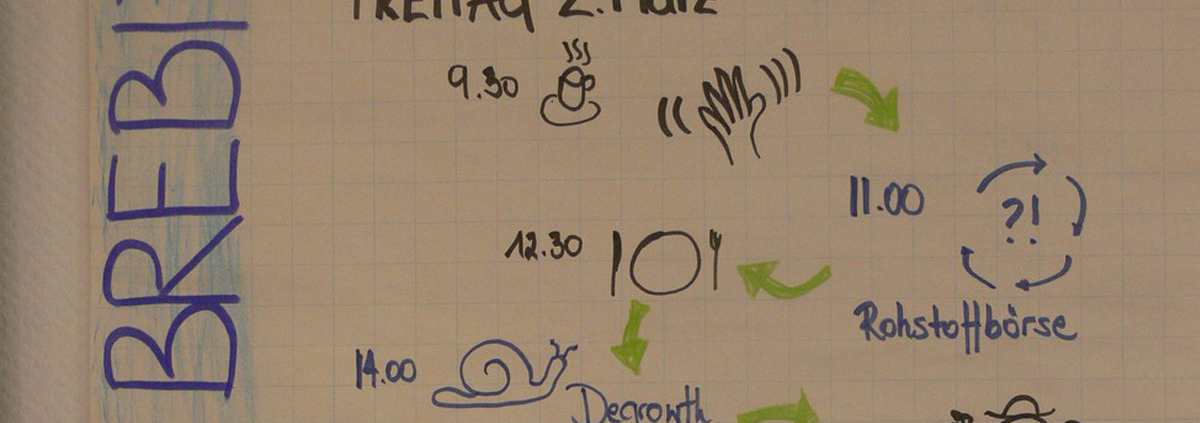 FREITAG 2. März
9.30
11.00
?!
Rohstoffbörse
12.30
14.00
Degrowth
BREBI